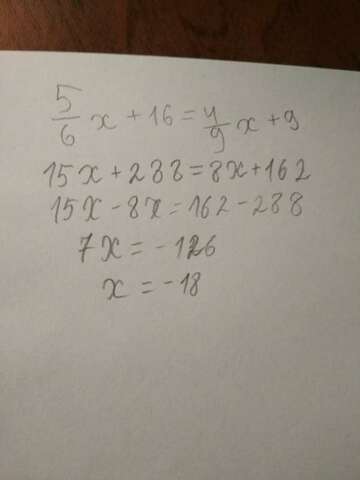 5/6 x + 16 = 4/9 x + 9
15x + 288 = 8x + 162
15x - 8x = 162 - 288
7x = -126
x = -18